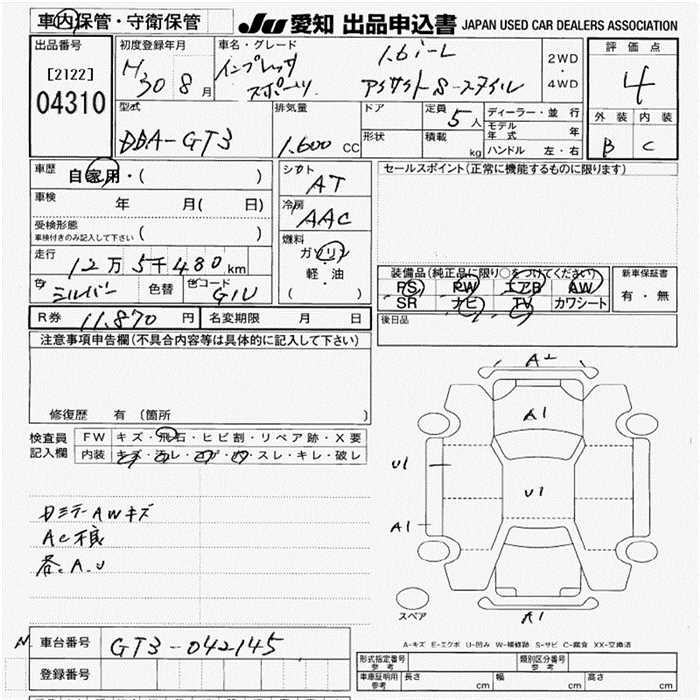 車内保管・守衛保管
JU 愛知 出品申込書 JAPAN USED CAR DEALERS ASSOCIATION
出品番号
[2122]
04310
初度登録年月
H30 8月
車名・グレード
インプレッサ
スポーツ
1.6i-L
アイサイトS-スタイル
2WD
・
4WD
評価点
4
外装 内装
B C
型式
DBA-GT3
排気量
1.600 CC
ドア
形状
定員
5人
積載
kg
ディーラー・並行
モデル年式 年
ハンドル 左・右
車歴
自家用・( )
車検
年 月( 日)
受検形態
車検付きのみ記入して下さい ( )
走行
12万5千480km
色 シルバー
色替
色コード G1U
シフト
AT
冷房
AAC
燃料
ガソリン
軽・油
( )
セールスポイント(正常に機能するものに限ります)
装備品(純正品に限り○をつけてください)
PS PW エアB AW
SR ナビ TV カワシート
新車保証書
有・無
R券 11.870 円
名変期限 月 日
後日品
注意事項申告欄(不具合内容等は具体的に記入して下さい)
修復歴 有 (箇所 )
検査員
記入欄
FW キズ・飛石・ヒビ割・リペア跡・X要
内装 キズ・スレ・キレ・破レ
AWキズ
A.U
A2
A1
U1
U1
A1
A1
スペア
A-キズ E-エクボ U-凹み W-補修跡 S-サビ C-腐食 XX-交換済
車台番号 GT3-042145
登録番号
形式指定番号
参考
類別区分番号
参考
車庫証明用
参考
長さ cm
幅 cm
高さ cm